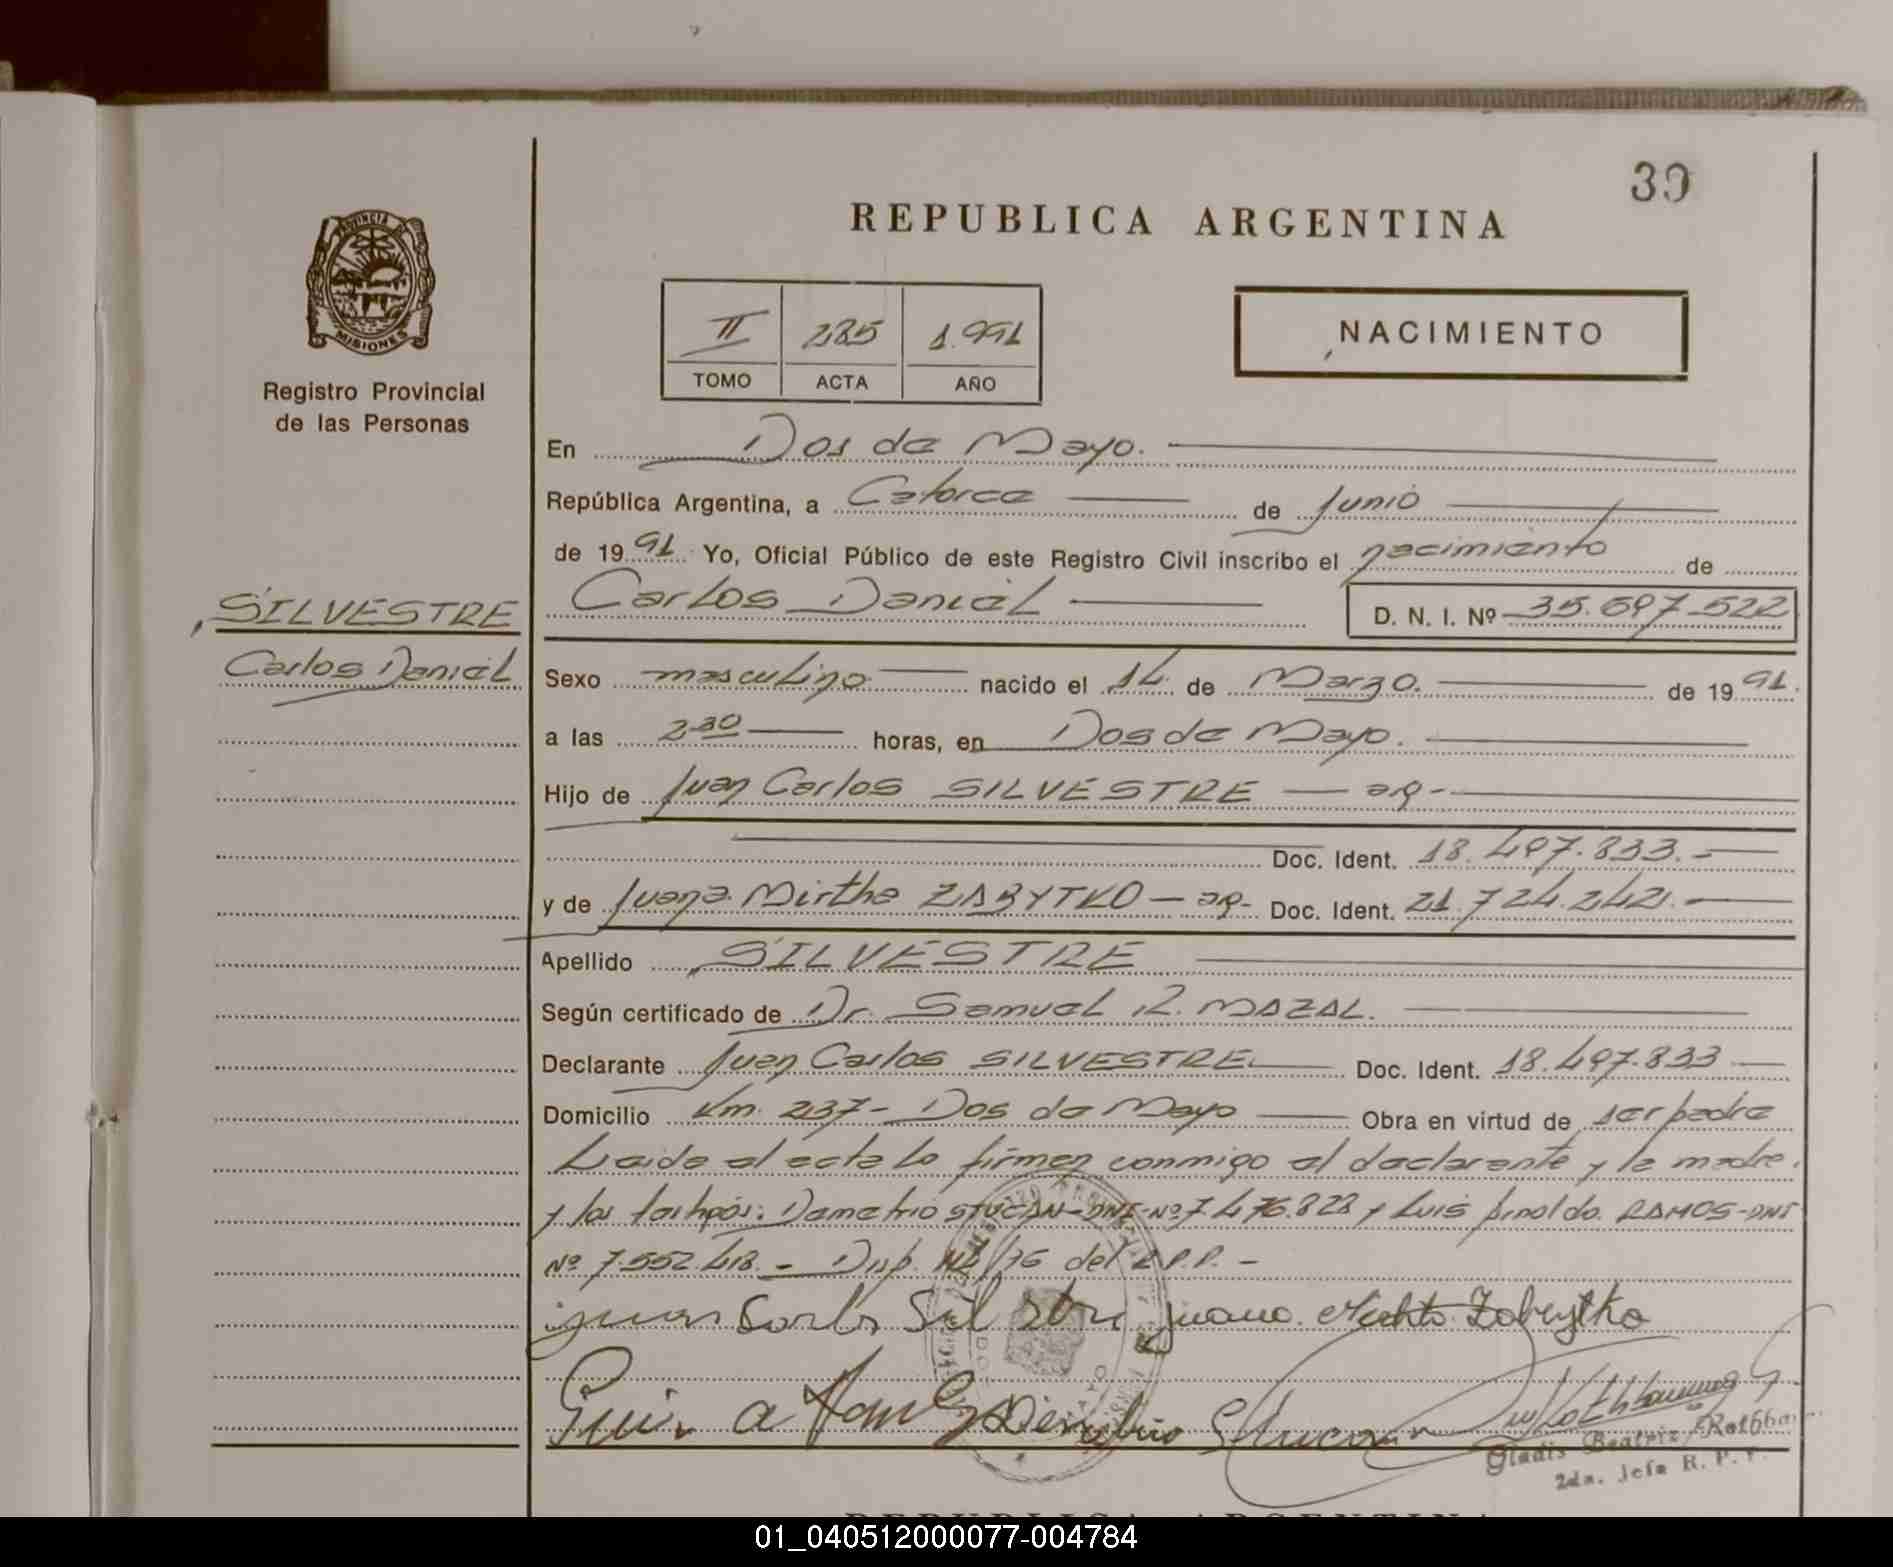 39
REPUBLICA ARGENTINA
PROVINCIA DE
MISIONES
Registro Provincial
de las Personas
II 285 1.991
TOMO ACTA AÑO
NACIMIENTO
En Dos de Mayo.
República Argentina, a Catorce de Junio
de 1991 Yo, Oficial Público de este Registro Civil inscribo el nacimiento de
SILVESTRE
Carlos Daniel
Carlos Daniel D. N. I. Nº 35.697.522
Sexo masculino nacido el 14 de Marzo. de 1991.
a las 2,30 horas, en Dos de Mayo.
Hijo de Juan Carlos SILVESTRE — ag-
Doc. Ident. 18.497.833.-
y de Juana Mirtha ZABYTKO — ag- Doc. Ident. 21.724.242.-
Apellido SILVESTRE
Según certificado de Dr. Samuel R. MAZAL.
Declarante Juan Carlos SILVESTRE Doc. Ident. 18.497.833
Domicilio Km. 237- Dos de Mayo Obra en virtud de ser padre
Leida el acta lo firman conmigo el declarante y la madre.
y los testigos: Demetrio STUCAN-DNI-Nº 7.476.828 y Luis RAMOS-DNI
Nº 7.552.418.- Disp. /76 del R.P.P.-
Juan Carlos Silvestre Juana Mirta Zabytko
Gladis Beatriz
2da. Jefa R. P. P.
REPUBLICA ARGENTINA
01_040512000077-004784